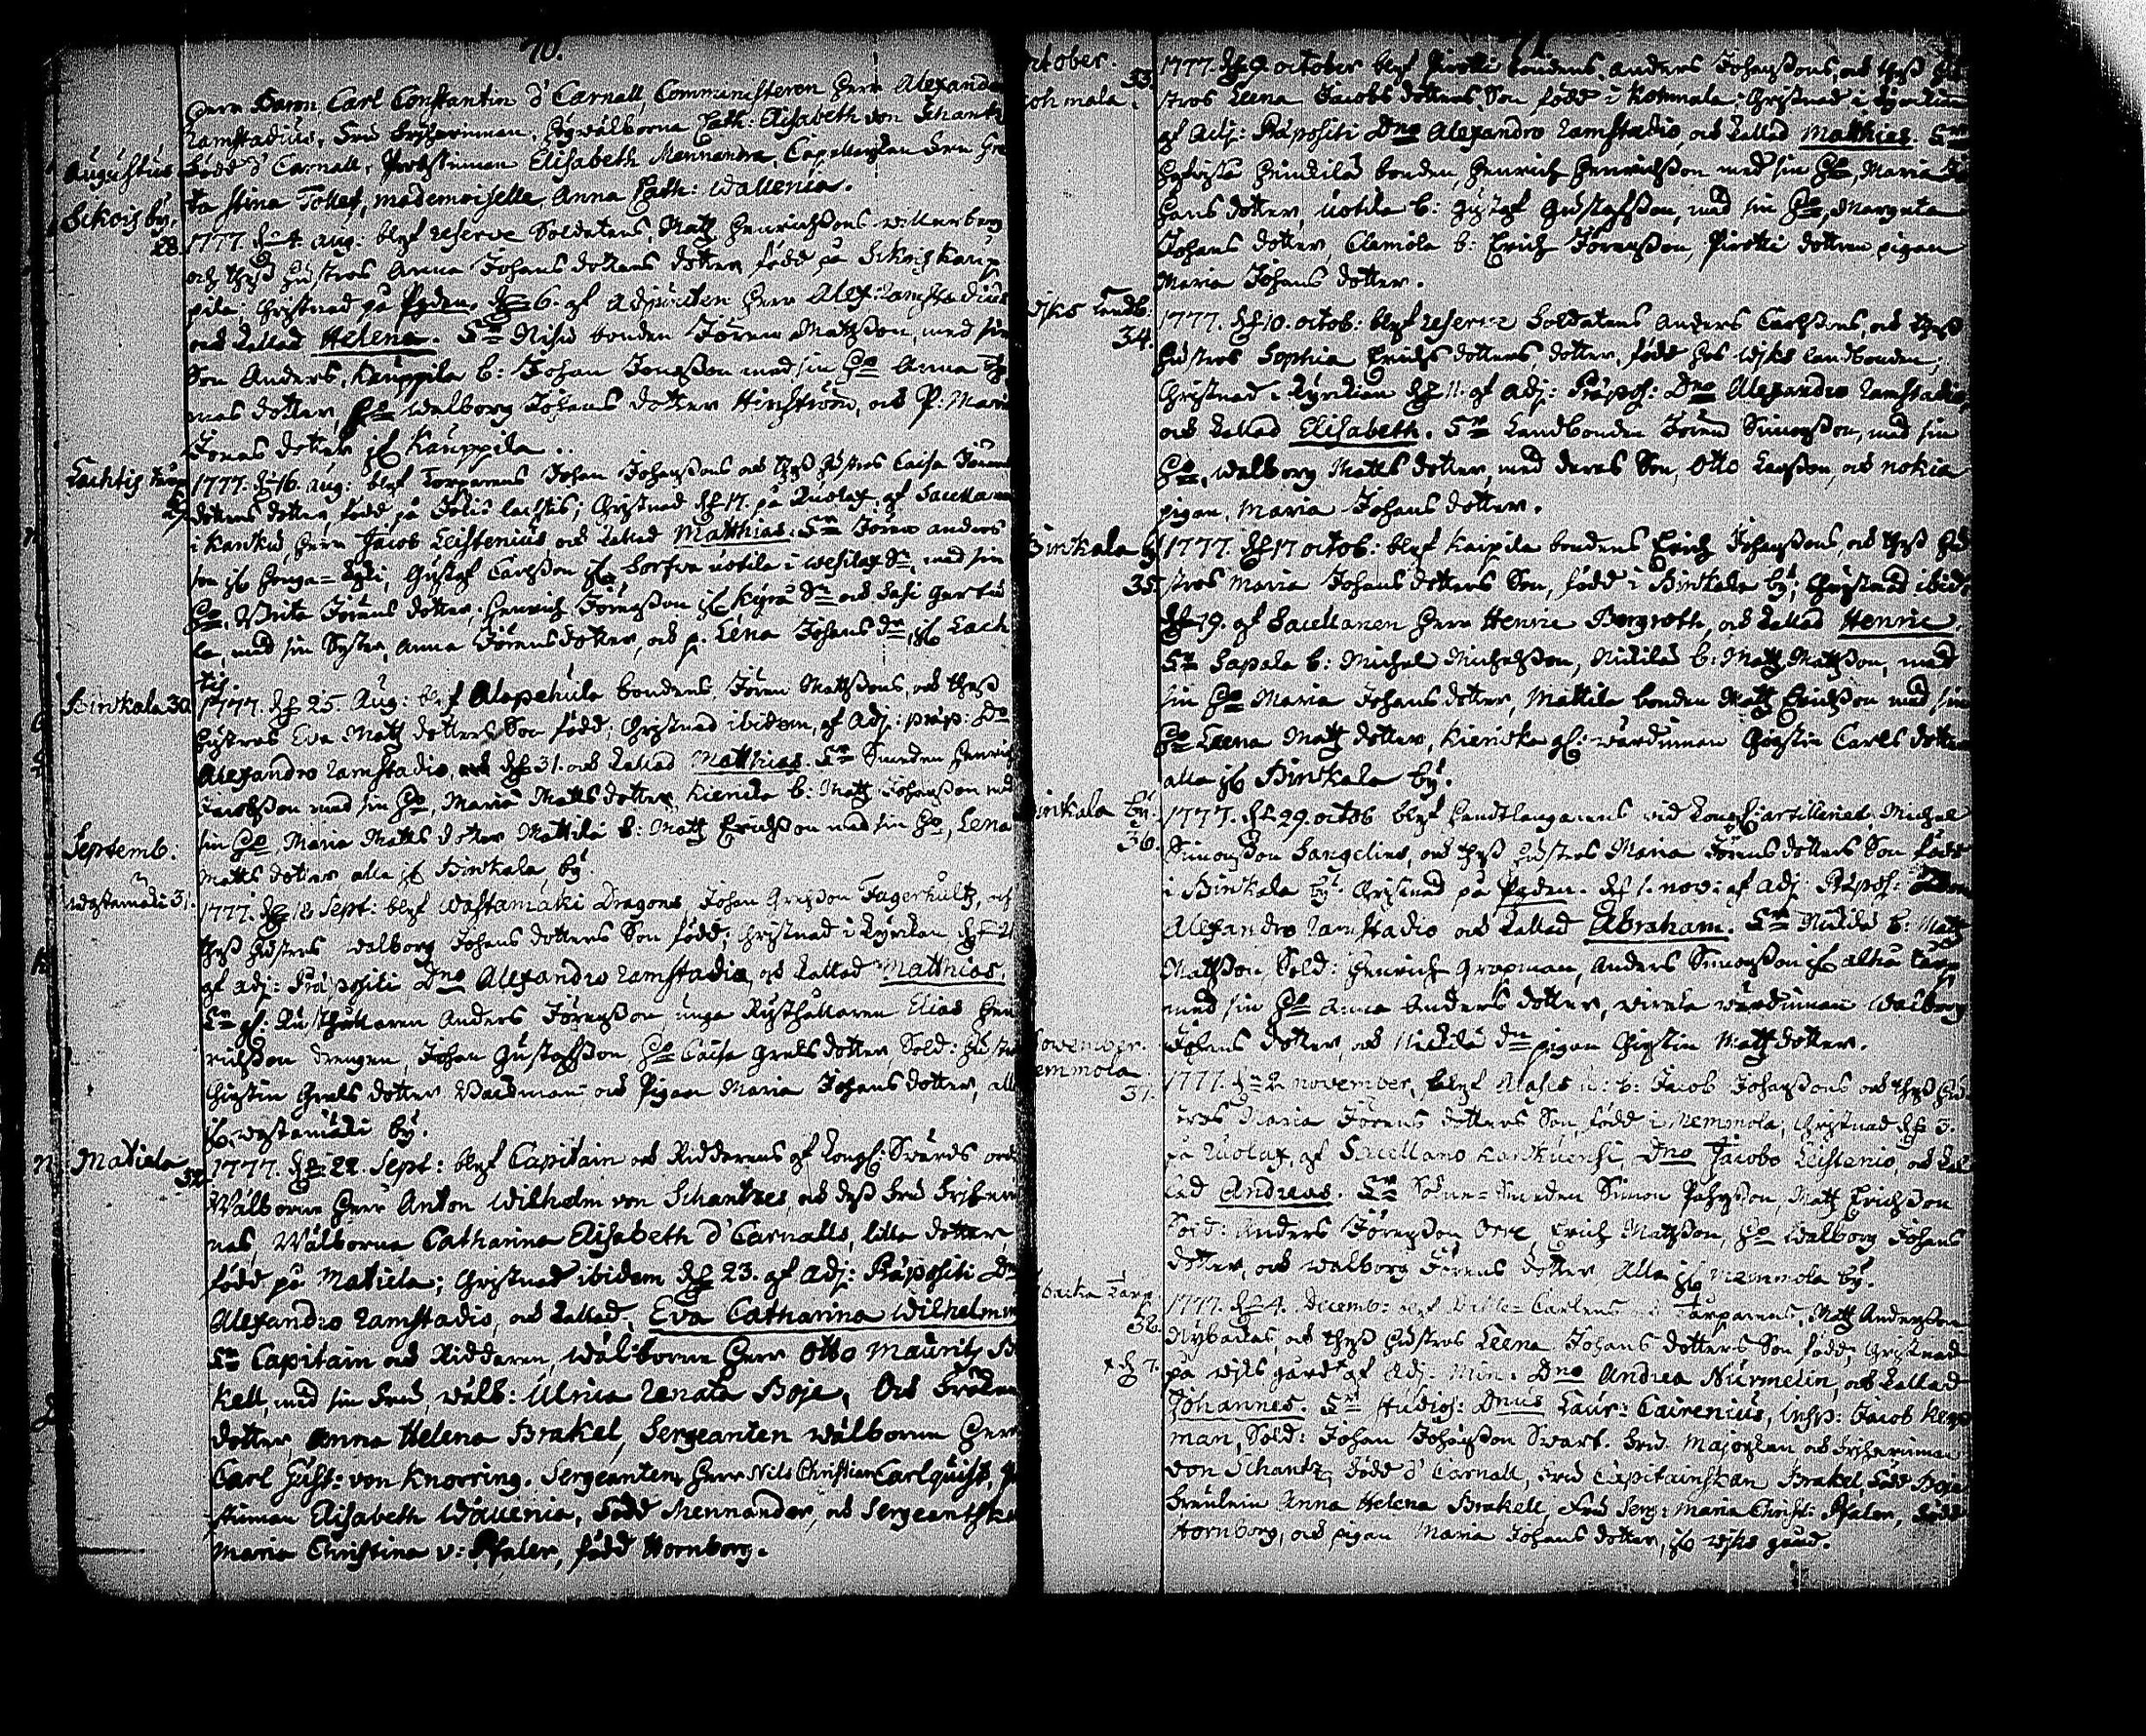 70.
Herr Baron Carl Constantin d'Carnall, Comministeren Herr Alexander
Ramstadius, Fru Friherinnan, Högwälborna Cath: Elisabeth von Schantz
född d'Carnall, Prostinnan Elisabeth Mennandra, Capellanskan Fru Gre
ta Stina Tollet, mademoiselle Anna Cath: Wallenia.
Augustus
Sikois by.
28.
1777. d. 4. Aug: blef reserve Soldatens, Matz Henrichssons Willberberg
och thess hustros Anna Johans dotters dotter född på Sikois Kaup
pila; Christnad på Pgden, d. 6. af Adjuncten Herr Alex: Ramstadius
och kallad Helena. Sr Nisu bonden Jören Mattsson, med sin
Son Anders, Kauppila b: Johan Jonsson med sin Ho Anna Tho
mas dotter, Ho Walborg Johans dotter Hinström, och P: Maria
Jonas dotter if. Kauppila.
Lachtis
29.
1777. d. 16. Aug: blef Torparens Johan Johanssons och thess hustros Caisa Jörens
dotters dotter, född på Jolis lachtis; Christnad d. 17. på Quolax, af Sacellanen
i Karkku, Herr Jacob Leistenius och kallad Matthias. Sr Jören Anders
son if. Honga-kyli, Gustaf Carlsson if. Sorfva uotila i Wesilax Sn, med sin
Ho, Brita Jörens dotter, Henrich Jörensson if. Kyrö Sn och
la, med sin Syster, Anna Jörens dotter, och p. Lena Johans dr, if. Lach
tis
Binkala 30.
1777. d. 25. Aug: blef Alapehula bondens Jören Mattssons, och thess
hustros Eva Matz dotters Son född; Christnad ibidem, af Adj: præp: Do
Alexandro Ramstadio, d. 31. och kallad Matthias. Sr Smeden Henrich
Jacobsson med sin Ho, Maria Matts dotter, Kiencke b: Matz Johansson med
sin Ho, Maria Matts dotter Mattila b: Matz Erichsson med sin Ho, Lena
Matts dotter alla if Binkala by.
Septemb:
Wästamäki 31.
1777. d. 18 Sept: blef Wästamäki Dragons Johan Grelsson Fagerhultz, och
thess hustros Walborg Johans dotters Son född; Christnad i Kyrckan d. 21
af Adj: Præpositi Dno Alexandro Ramstadio, och kallad Matthias.
Sr gl: Rusthållaren Anders Jörensson, unga Rusthållaren Elias Hen
richsson drengen, Johan Gustafsson, Ho Caisa Grels dotter, Sold: hustru
Christin Grels dotter Waldman och Pigan Maria Johans dotter, alla
if. Wästamäki by.
Matiala
32.
1777. d. 22. Sept: blef Capitain och Ridderens af Kongl: Swärds ord
Wälborne Herr Anton Wilhelm von Schantzes, och dess Fru Friherin
nas, Wälborna Catharina Elisabeth d'Carnalls, lilla dotter,
född på Matiala; Christnad ibidem d. 23. af Adj: Præpositi Dno
Alexandro Ramstadio, och kallad, Eva Catharina Wilhelmina
Sr Capitain och Ridderen, Wälborne Herr Otto Maurits Bra
kell, med sin Fru, Wälb: Ulrica Renata Boje, och Fröken
dotter, Anna Helena Brakel, Sergeanten wälborne Herr
Carl Gust: von Knorring. Sergeanten Herr Nils Christian Carlquist,
stinnan Elisabeth Wallenia, född Mennander, och Sergeantska
Maria Christina v: Pfaler, född Hornborg.
71
october.
33.
kohmala.
1777. d. 9. october blef Pirotti bondens, Anders Johanssons, och thess hu
stros Leena Jacobs dotters Son född i Kohmala; Christnad i Kyrckan
af Adj: Præpositi Dno Alexandro Ramstadio, och kallad Matthias. Sr
Heickilä bonden, Henrich Henrichsson med sin Ho, Maria
Hans dotter, Uotila b: Gustaf Gustafsson, med sin Ho, Margreta
Johans dotter, Clemola b: Erich Jörensson, Pirotti dottren pigan
Maria Johans dotter.
Wjks Landb:
34.
1777. d. 10. octob: blef reserve Soldatens Anders Carlssons, och thess
hustros Sophia Erichs dotters, dotter, född hos Wjks landbonden,
Christnad i Kyrckan d. 11. af Adj: Præpos: Dno Alexandro Ramstadio,
och kallad Elisabeth. Sr Landbonden Jören Simonsson, med sin
Ho, Walborg Matts dotter, med deras Son, Otto Larsson, och nokia
pigan, Maria Johans dotter.
Binkala by
35.
1777. d. 17 octob: blef Kaipila bondens Erich Johanssons, och thess hu
stros Maria Johans dotters Son, född i Binkala by; Christnad ibid:
d. 19. af Sacellanen Herr Henric Bergroth, och kallad Henric.
Sr Sapala b: Michel Michelsson, Nickilä b: Matz Mattsson, med
sin Ho Maria Johans dotter, Mattila bonden Matz Erichsson med sin
Ho Leena Matz dotter, Kiencke gl: wärdinnan Christin Carls dotter
alla if Binkala by.
Binkala by.
36.
1777. d. 29. octob blef Handtlangarens wid Kongl: artilleriet, Michel
Simonsson Sangelins, och thess hustros Maria Jörens dotters Son född
i Binkala by. Christnad på Pgden. d. 1. nov: af Adj: Præpos: Dno
Alexandro Ramstadio och kallad Abraham. Sr Nickilä b: Matz
Mattsson, Sold: Henrich Grapman, Anders Simonsson if alhu torp
med sin Ho Anna Anders dotter, Wirala wärdinnan Walborg
Johans dotter, och Nickilä dn pigan Christin Matz dotter.
November.
Memmola
37.
1777. d. 2. november, blef Alases b: Jacob Johanssons och thess hu
stros Maria Jörens dotters Son, född i Memmola, Christnad d. 3.
på Quolax, af Sacellano Karkkuensi, Dno Jacobo Leistenio, och kal
lad Andreas. Sr Sokne-smeden Simon Johansson, Matz Erichsson
Sold: Anders Jörensson Orre, Erich Mattsson, Ho Walborg Johans
dotter, och Walborg Jörens dotter, Alla if Memmola by.
Torp.
38.
1777. d. 4. Decemb: blef Torparens, Matz Andersson
Nybackas, och thess hustros Leena Johans dotters Son född; Christnad
* d. 7.
på Wjks gård* af Adj. Min. Dno Andrea Nurmelin, och kallad
Johannes. Sr Studios: Dnus Laur: Cairenius, Insp: Jacob Keck
man, Sold: Johan Johansson Swart. Fru Majorskan och Friherinnan
von Schantz, född d'Carnall, Fru Capitainskan Brakel, född Boje
Freulein Anna Helena Brakell, Fru Serg: Maria Christ: Pfaler, född
Hornborg, och pigan Maria Johans dotter, if Wjks gård.